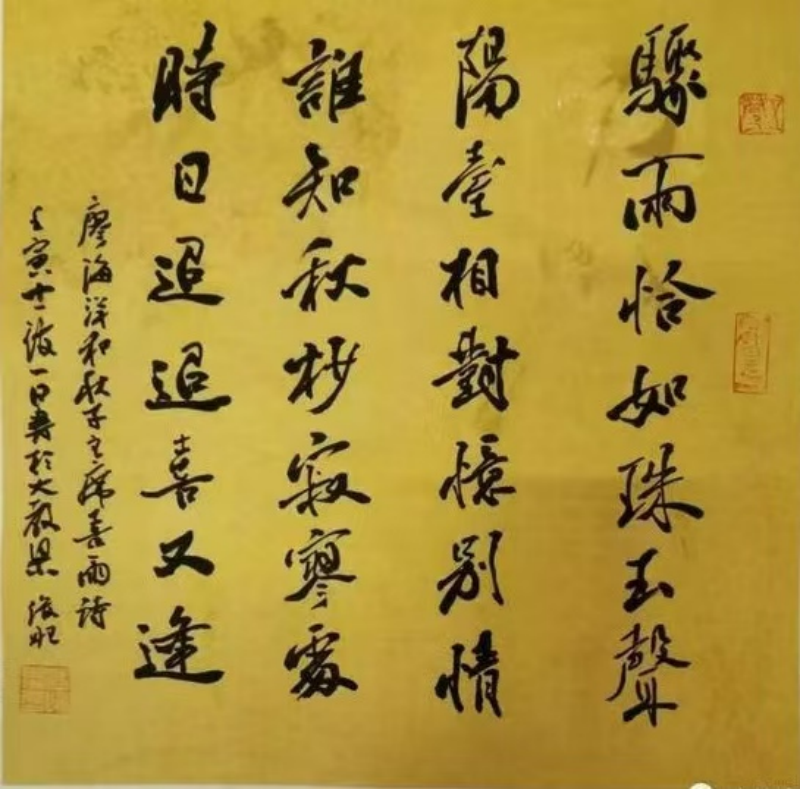 驟雨恰如珠玉聲
陽臺相對憶別情
誰知秋杪寂寥處
時日迢迢喜又逢
廖海洋和秋子主席喜雨詩
壬寅十一後一日書於大啟